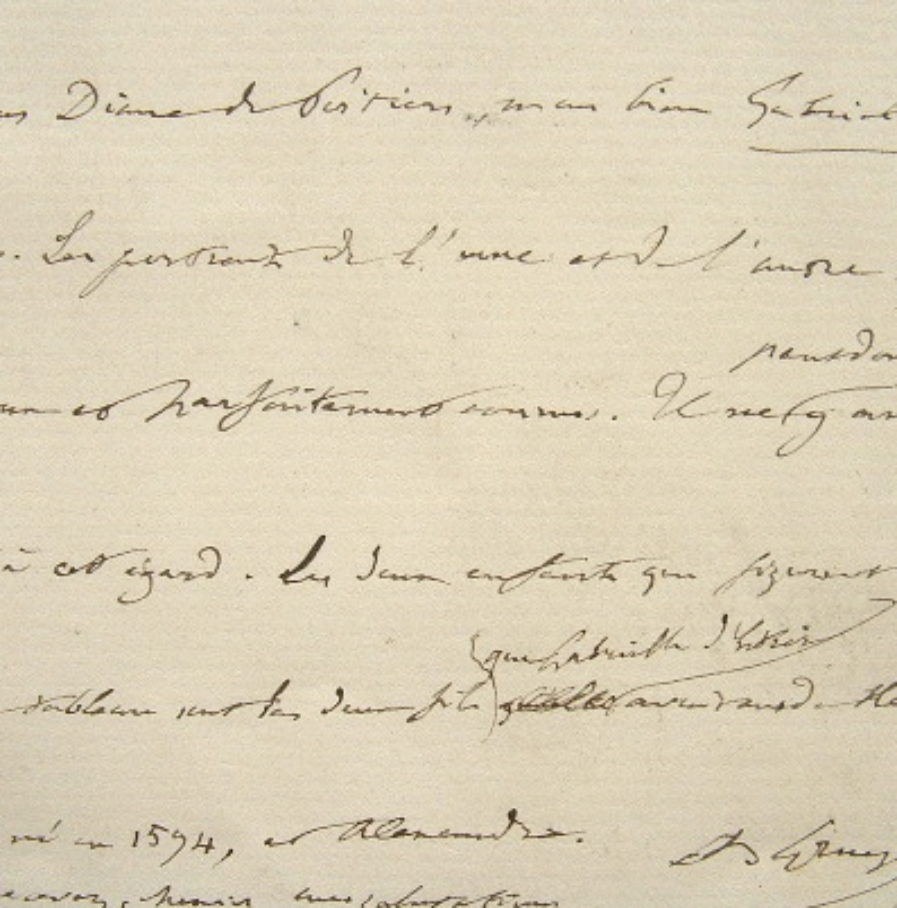 Diane de Poitiers, mais bien Gabriel
. Les portraits de l'une et de l'autre
sont parfaitement connus. Il ne (y a
à cet égard. Les deux enfants qui figurent
que Gabrielle d'Estrées
tableau sont les deux fils avait eus de He
né en 1594, et Alexandre.
recevez, Monsieur mes salutations